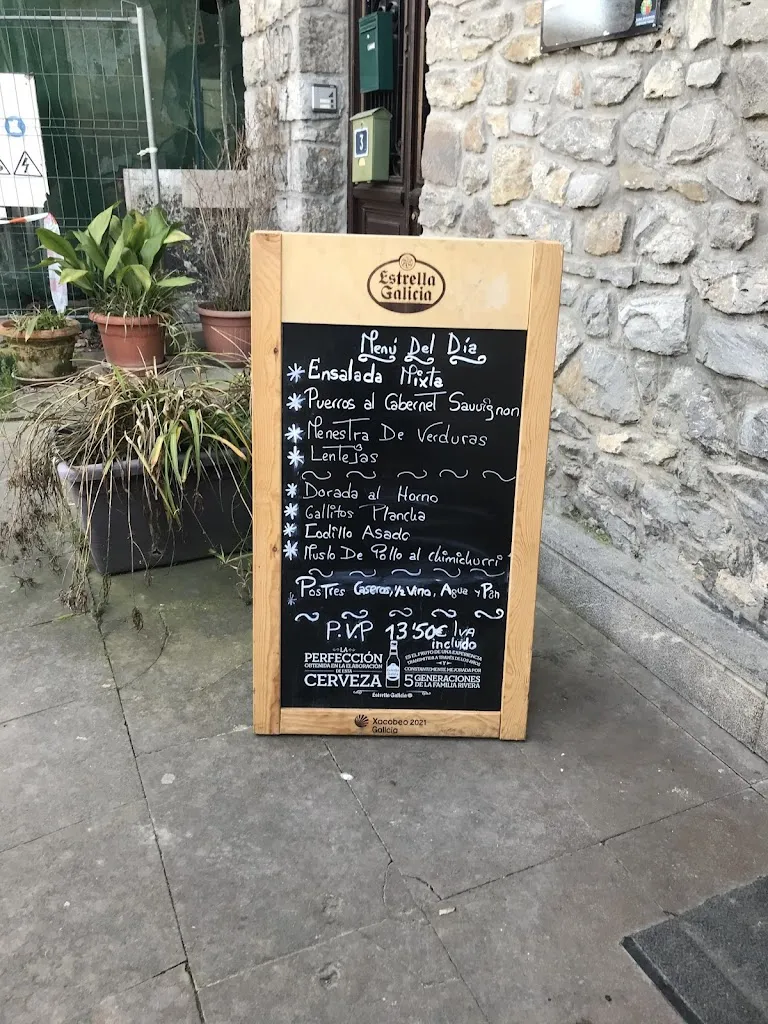 3
Estrella
Galicia
Menú Del Día
* Ensalada Mixta
* Puerros al Cabernet Sauvignon
* Menestra De Verduras
* Lentejas
* Dorada al Horno
* Gallitos Plancha
* Codillo Asado
* Muslo De Pollo al chimichurri
* Postres Caseros, 1/2 Vino, Agua y Pan
P.V.P 13'50€ Iva
incluido
LA
PERFECCIÓN
OBTENIDA EN LA ELABORACIÓN
DE ESTA
CERVEZA
ES EL FRUTO DE UNA EXPERIENCIA
TRANSMITIDA A TRAVÉS DE LOS AÑOS
Y
CONSTANTEMENTE MEJORADA POR
5 GENERACIONES
DE LA FAMILIA RIVERA
Estrella Galicia
Xacobeo 2021
Galicia